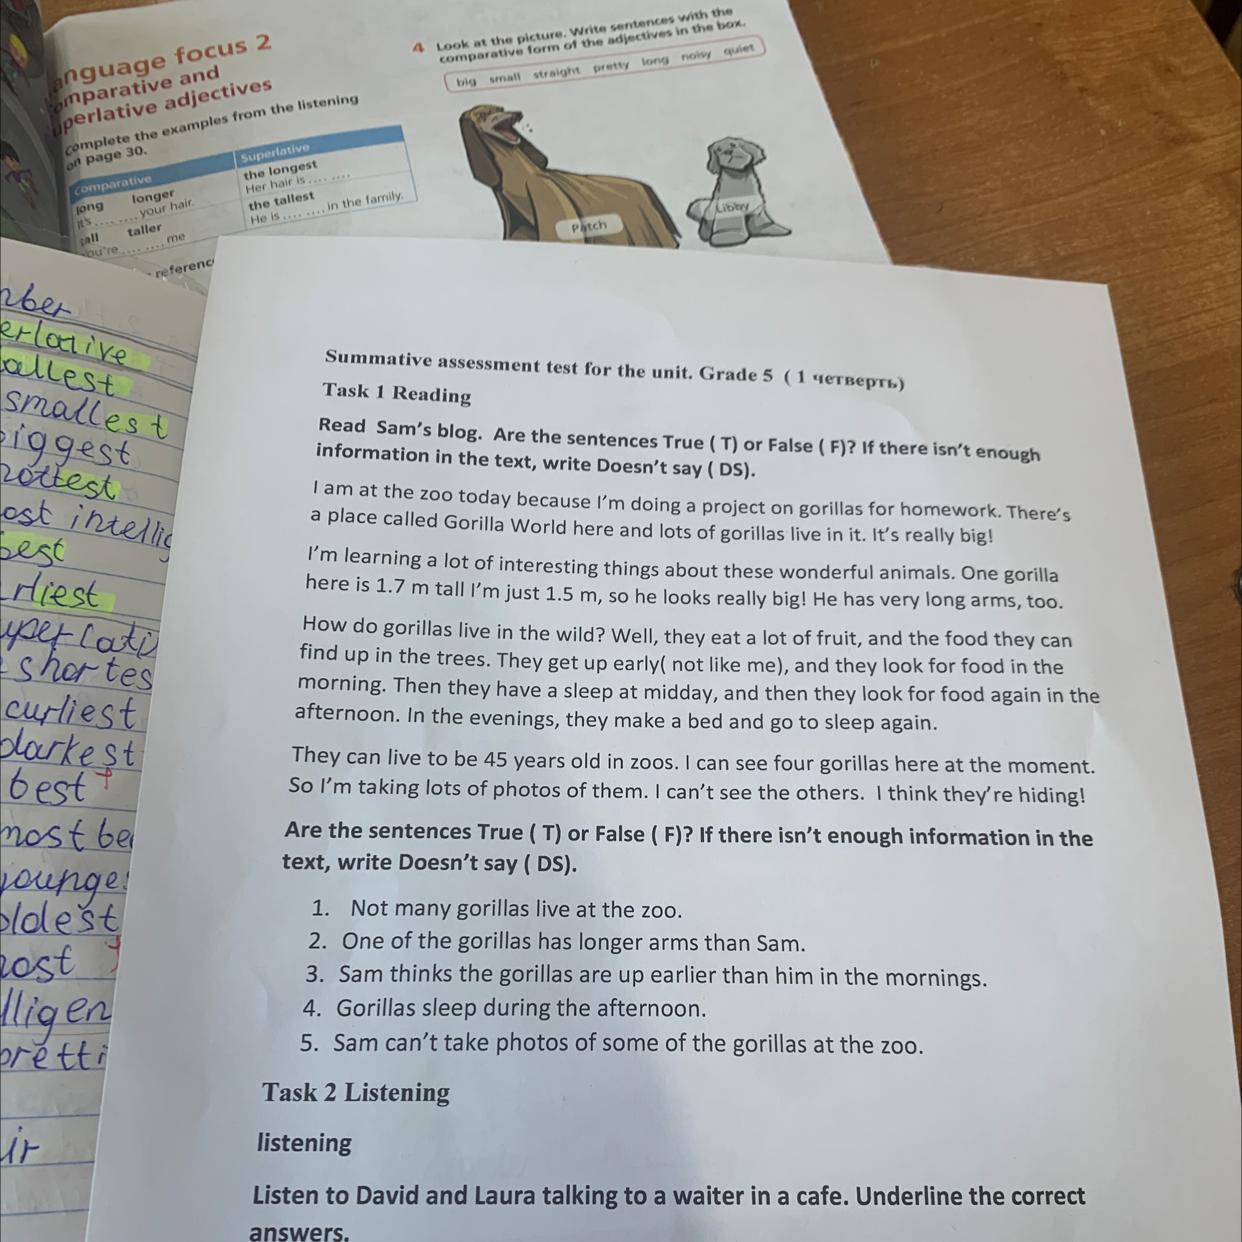 anguage focus 2
omparative and
perlative adjectives
complete the examples from the listening
on page 30.
Comparative Superlative
long longer the longest
It's ........ your hair. Her hair is ........
tall taller the tallest
You're ........ me He is ........ in the family.
reference
4 Look at the picture. Write sentences with the
comparative form of the adjectives in the box.
big small straight pretty long noisy quiet
Patch
Libby
mber
erlative
allest
smallest
biggest
hottest
ost intellig
best
rliest
uperlati
shortes
curliest
darkest
best
most be
younge
oldest
most
lligen
pretti
ir
Summative assessment test for the unit. Grade 5 ( 1 четверть)
Task 1 Reading
Read Sam's blog. Are the sentences True ( T) or False ( F)? If there isn't enough
information in the text, write Doesn't say ( DS).
I am at the zoo today because I'm doing a project on gorillas for homework. There's
a place called Gorilla World here and lots of gorillas live in it. It's really big!
I'm learning a lot of interesting things about these wonderful animals. One gorilla
here is 1.7 m tall I'm just 1.5 m, so he looks really big! He has very long arms, too.
How do gorillas live in the wild? Well, they eat a lot of fruit, and the food they can
find up in the trees. They get up early( not like me), and they look for food in the
morning. Then they have a sleep at midday, and then they look for food again in the
afternoon. In the evenings, they make a bed and go to sleep again.
They can live to be 45 years old in zoos. I can see four gorillas here at the moment.
So I'm taking lots of photos of them. I can't see the others. I think they're hiding!
Are the sentences True ( T) or False ( F)? If there isn't enough information in the
text, write Doesn't say ( DS).
1. Not many gorillas live at the zoo.
2. One of the gorillas has longer arms than Sam.
3. Sam thinks the gorillas are up earlier than him in the mornings.
4. Gorillas sleep during the afternoon.
5. Sam can't take photos of some of the gorillas at the zoo.
Task 2 Listening
listening
Listen to David and Laura talking to a waiter in a cafe. Underline the correct
answers.